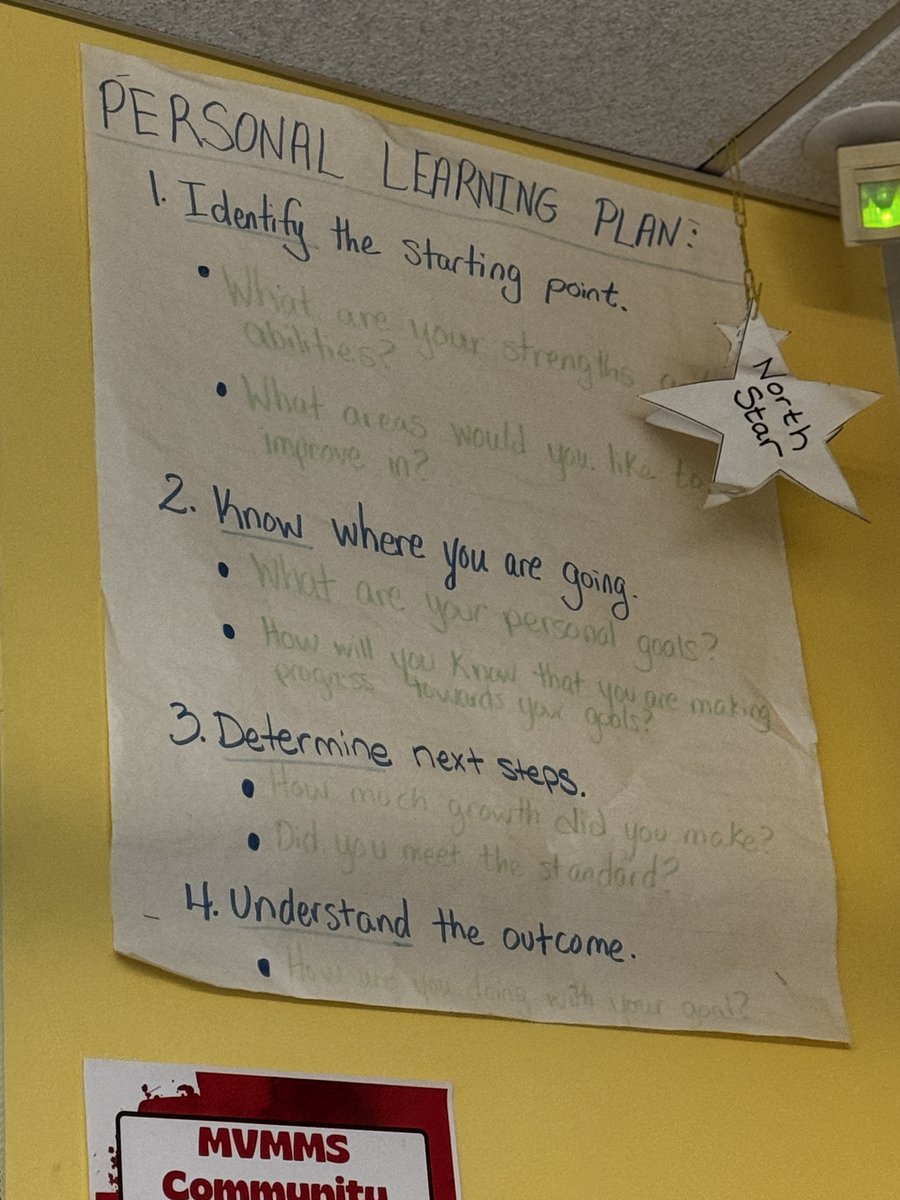 PERSONAL LEARNING PLAN:
1. Identify the starting point.
• What are your strengths
abilities?
• What areas would you like to
improve in?
2. Know where you are going.
• What are your personal goals?
• How will you know that you are making
progress towards your goals?
3. Determine next steps.
• How much growth did you make?
• Did you meet the standard?
4. Understand the outcome.
• How are you doing with your goal?
North
Star
MVMMS
Community